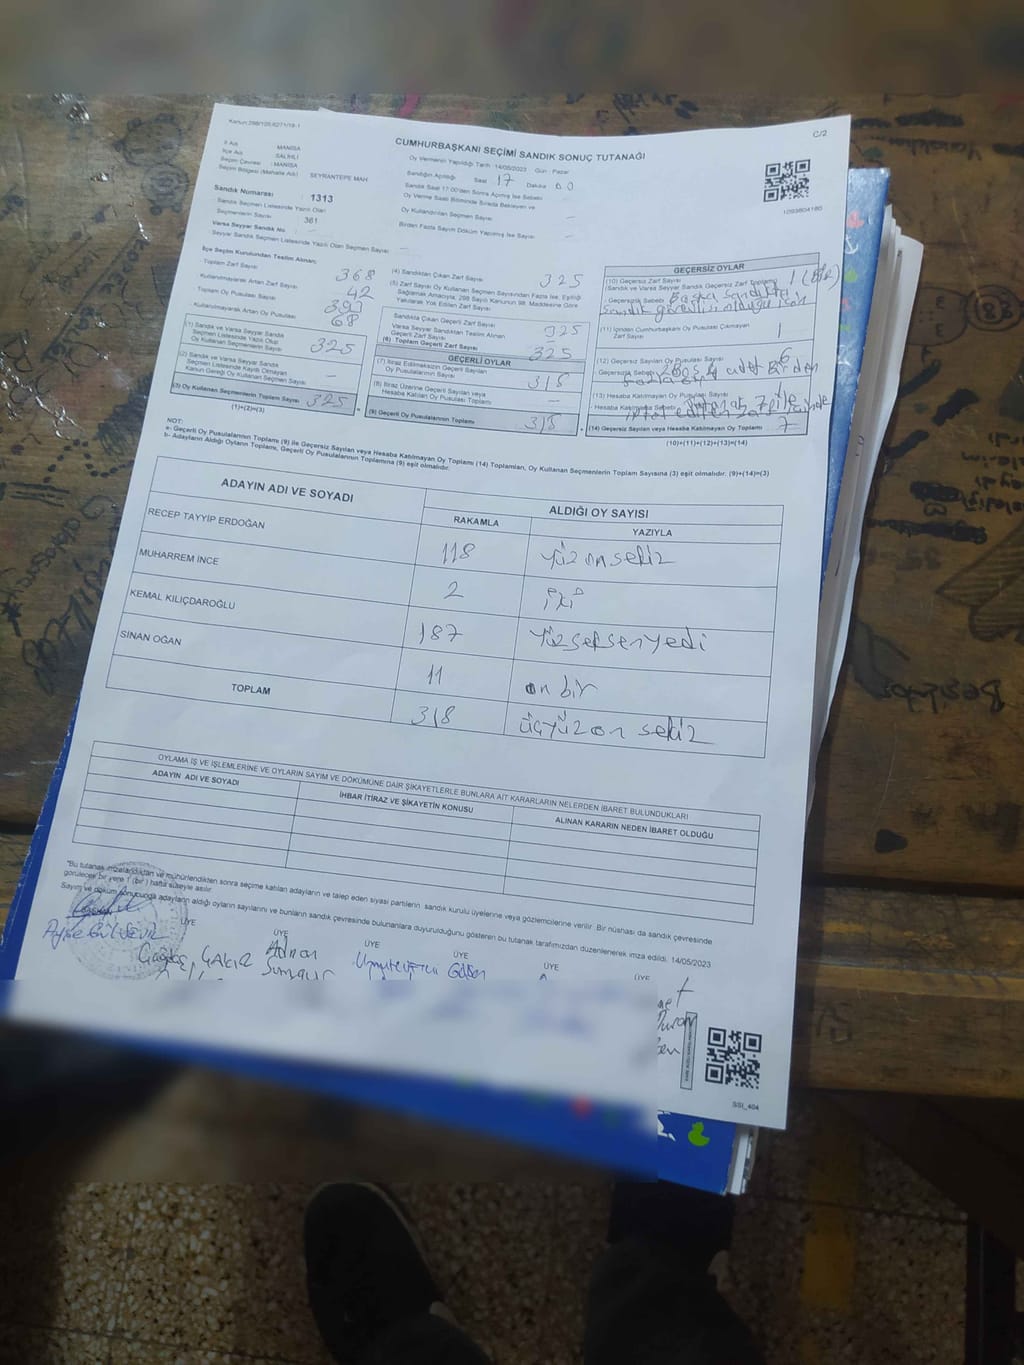 Kanun:298/105,6271/19-1
C/2
CUMHURBAŞKANI SEÇİMİ SANDIK SONUÇ TUTANAĞI
İl Adı : MANİSA
İlçe Adı : SALİHLİ
Seçim Çevresi : MANİSA
Seçim Bölgesi (Mahalle Adı) : SEYRANTEPE MAH
Sandık Numarası : 1313
Sandık Seçmen Listesinde Yazılı Olan
Seçmenlerin Sayısı : 361
Varsa Seyyar Sandık No : -
Seyyar Sandık Seçmen Listesinde Yazılı Olan Seçmen Sayısı : -
Oy Vermenin Yapıldığı Tarih :14/05/2023 Gün : Pazar
Sandığın Açıldığı Saat 17 Dakika 00
Sandık Saat 17:00'den Sonra Açılmış İse Sebebi
Oy Verme Saati Bitiminde Sırada Bekleyen ve
Oy Kullandırılan Seçmen Sayısı : -
Birden Fazla Sayım Döküm Yapılmış İse Sayısı : -
1293804180
İlçe Seçim Kurulundan Teslim Alınan;
- Toplam Zarf Sayısı 368
- Kullanılmayarak Artan Zarf Sayısı 42
- Toplam Oy Pusulası Sayısı
- Kullanılmayarak Artan Oy Pusulası 68
(1) Sandık ve Varsa Seyyar Sandık
Seçmen Listesinde Yazılı Olup
Oy Kullanan Seçmenlerin Sayısı 325
(2) Sandık ve Varsa Seyyar Sandık
Seçmen Listesinde Kayıtlı Olmayan
Kanun Gereği Oy Kullanan Seçmen Sayısı -
(3) Oy Kullanan Seçmenlerin Toplam Sayısı 325
(1)+(2)=(3)
(4) Sandıktan Çıkan Zarf Sayısı 325
(5) Zarf Sayısı Oy Kullanan Seçmen Sayısından Fazla İse, Eşitliği
Sağlamak Amacıyla, 298 Sayılı Kanunun 98. Maddesine Göre
Yakılarak Yok Edilen Zarf Sayısı -
Sandıkta Çıkan Geçerli Zarf Sayısı 325
Varsa Seyyar Sandıktan Teslim Alınan
Geçerli Zarf Sayısı -
(6) Toplam Geçerli Zarf Sayısı 325
GEÇERLİ OYLAR
(7) İtiraz Edilmeksizin Geçerli Sayılan
Oy Pusulalarının Sayısı 318
(8) İtiraz Üzerine Geçerli Sayılan veya
Hesaba Katılan Oy Pusulası Toplamı -
(9) Geçerli Oy Pusulalarının Toplamı 318
GEÇERSİZ OYLAR
(10) Geçersiz Zarf Sayısı
(Sandık ve Varsa Seyyar Sandık Geçersiz Zarf Toplamı) 1 (Bir)
- Geçersizlik Sebebi Başka Sandıkta
sandık görevlisi olduğu için
(11) İçinden Cumhurbaşkanı Oy Pusulası Çıkmayan
Zarf Sayısı 1
(12) Geçersiz Sayılan Oy Pusulası Sayısı 6
Geçersizlik Sebebi
(13) Hesaba Katılmayan Oy Pusulası Sayısı
Hesaba Katılmama Sebebi
(14) Geçersiz Sayılan veya Hesaba Katılmayan Oy Toplamı 7
(10)+(11)+(12)+(13)=(14)
NOT:
a- Geçerli Oy Pusulalarının Toplamı (9) ile Geçersiz Sayılan veya Hesaba Katılmayan Oy Toplamı (14) Toplamları, Oy Kullanan Seçmenlerin Toplam Sayısına (3) eşit olmalıdır. (9)+(14)=(3)
b- Adayların Aldığı Oyların Toplamı, Geçerli Oy Pusulalarının Toplamına (9) eşit olmalıdır.
ADAYIN ADI VE SOYADI
ALDIĞI OY SAYISI
RAKAMLA YAZIYLA
RECEP TAYYİP ERDOĞAN 118 yüz onsekiz
MUHARREM İNCE 2 iki
KEMAL KILIÇDAROĞLU 187 Yüzseksenyedi
SİNAN OĞAN 11 on bir
TOPLAM 318 üçyüz on sekiz
OYLAMA İŞ VE İŞLEMLERİNE VE OYLARIN SAYIM VE DÖKÜMÜNE DAİR ŞİKAYETLERLE BUNLARA AİT KARARLARIN NELERDEN İBARET BULUNDUKLARI
ADAYIN ADI VE SOYADI İHBAR İTİRAZ VE ŞİKAYETİN KONUSU ALINAN KARARIN NEDEN İBARET OLDUĞU
"Bu tutanak imzalandıktan ve mühürlendikten sonra seçime katılan adayların ve talep eden siyasi partilerin sandık kurulu üyelerine veya gözlemcilerine verilir. Bir nüshası da sandık çevresinde
görülecek bir yere 1 (bir) hafta süreyle asılır.
Sayım ve döküm sonucunda adayların aldığı oyların sayılarını ve bunların sandık çevresinde bulunanlara duyurulduğunu gösteren bu tutanak tarafımızdan düzenlenerek imza edildi. 14/05/2023
ÜYE ÜYE ÜYE ÜYE ÜYE ÜYE
Çağdaş ÇAKIR Adnan
SSI_404